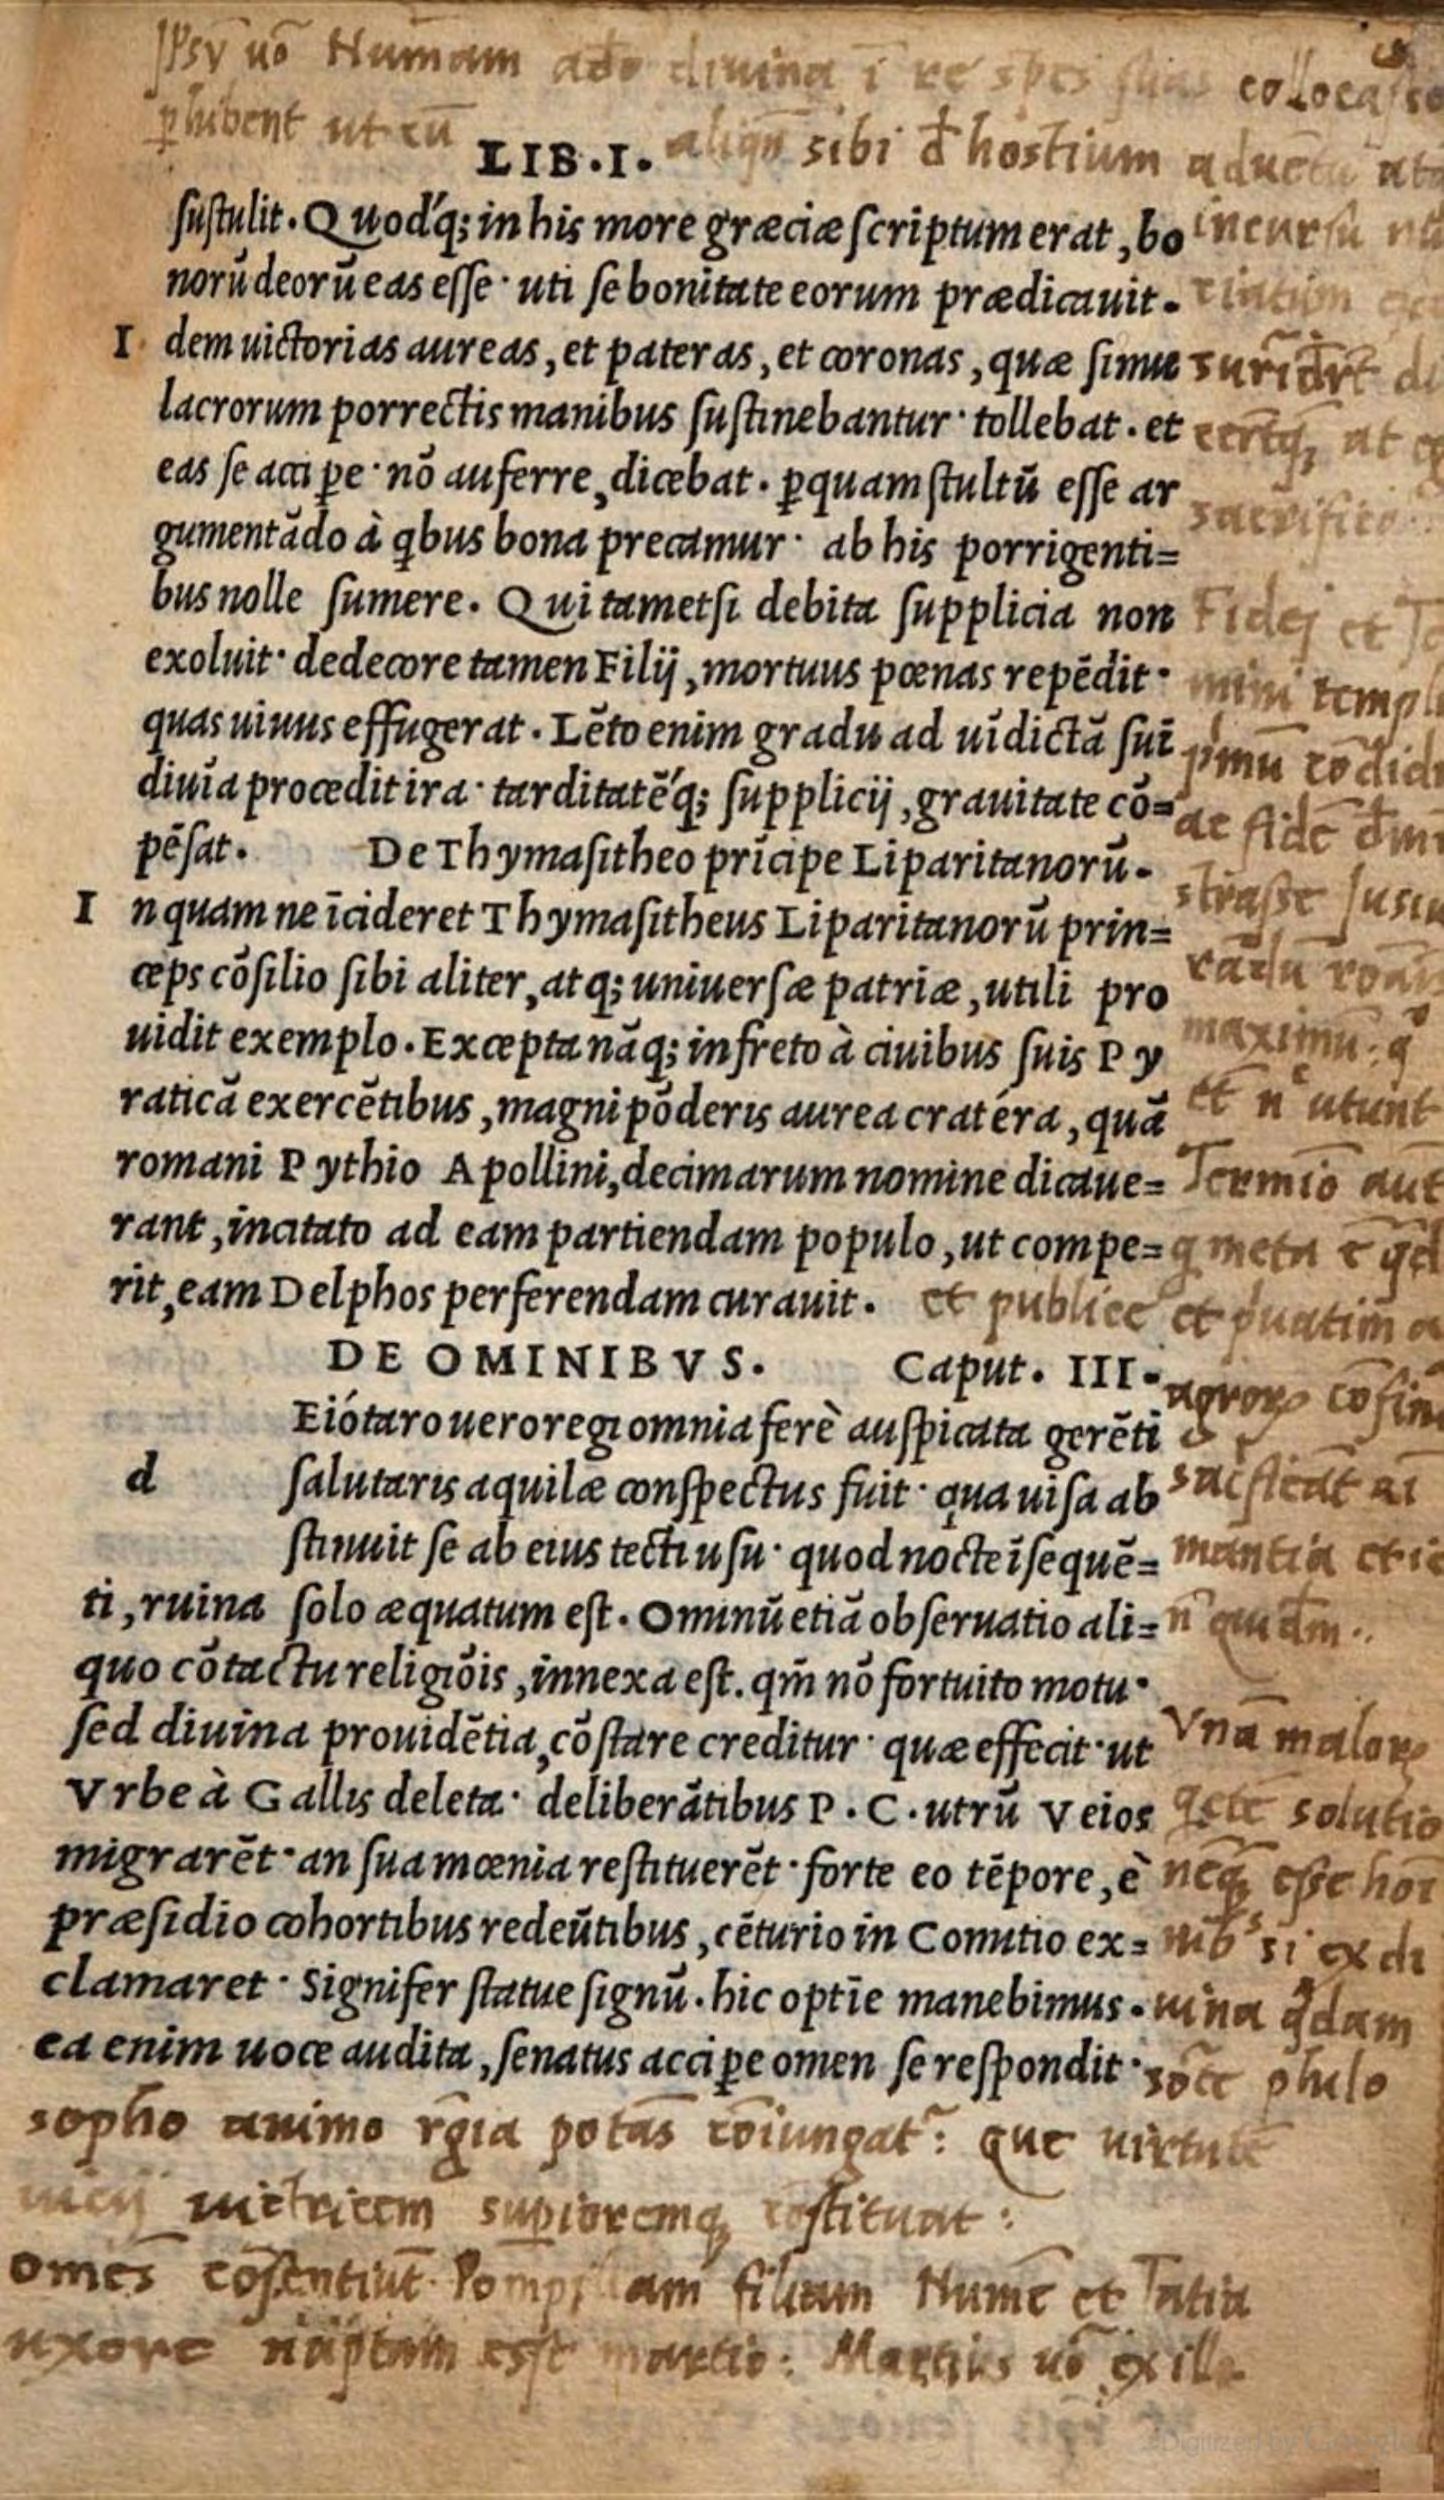 Ipsū uō Numam ado diuina ī re spes suas collocasse
ꝑhibent ut cū aliqn̄ sibi đ hostium aduētu
LIB.I.
ſuſtulit. Quod'q; in his more græciæ ſcriptum erat, bo
norū deorū eas eſſe· uti ſe bonitate eorum prædicauit.
I dem uictorias aureas, et pateras, et coronas, quæ ſimu
lacrorum porrectis manibus ſuſtinebantur· tollebat. et
eas ſe acciꝑe· nō auferre, dicebat. ꝑquam ſtultū eſſe ar
gumentādo à qbus bona precamur· ab his porrigenti=
bus nolle ſumere. Qui tametſi debita ſupplicia non
exoluit· dedecore tamen Filij, mortuus pœnas repēdit·
quas uiuus effugerat. Lēto enim gradu ad uīdictā ſuī
diuīa procedit ira· tarditatē'q; ſupplicij, grauitate cō=
pēſat. De Thymaſitheo prīcipe Liparitanorū.
I n quam ne īcideret Thymaſitheus Liparitanorū prin=
ceps cōſilio ſibi aliter, atq; uniuerſæ patriæ, utili pro
uidit exemplo. Excepta nāq; in freto à ciuibus ſuis Py
raticā exercētibus, magni pōderis aurea cratéra, quā
romani Pythio Apollini, decimarum nomine dicaue=
rant, incitato ad eam partiendam populo, ut compe=
rit, eam Delphos perferendam curauit.
DE OMINIBVS. Caput. III.
d Eiótaro uero regi omnia ferè auſpicata gerēti
ſalutaris aquilæ conſpectus fuit· qua uiſa ab
ſtinuit ſe ab eius tecti uſu· quod nocte īſequē=
ti, ruina ſolo æquatum eſt. Ominū etiā obſeruatio ali=
quo cōtactu religiōis, innexa eſt. qm̄ nō fortuito motu·
ſed diuina prouidētia, cōſtare creditur· quæ effecit· ut
Vrbe à Gallis deleta· deliberātibus P. C. utrū Veios
migrarēt· an ſua mœnia reſtituerēt· forte eo tēpore, è
præſidio cohortibus redeūtibus, cēturio in Comitio ex=
clamaret· Signifer ſtatue ſignū. hic optīe manebimus.
ea enim uoce audita, ſenatus acciꝑe omen ſe reſpondit·
incursu
sacrifico
Fidej et
mini templ
pmū cōdid
ac fidē
strasse Jusiu
maximū
et n utunt
Termīo aut
et publice et puatim
mantia
Vnā malorꝝ
solutio
neqꝫ esse
si ex di
uina qdam
sōte philo
sopho animo rḡia potas cōiungat: que uirtute
uicij uictricem supioremqꝫ cōstituat:
omēs cōsentiūt Pompiliam filiam Nume et Tatia
uxore nuptam esse martio: Martius uō ex illa
Digitized by Google